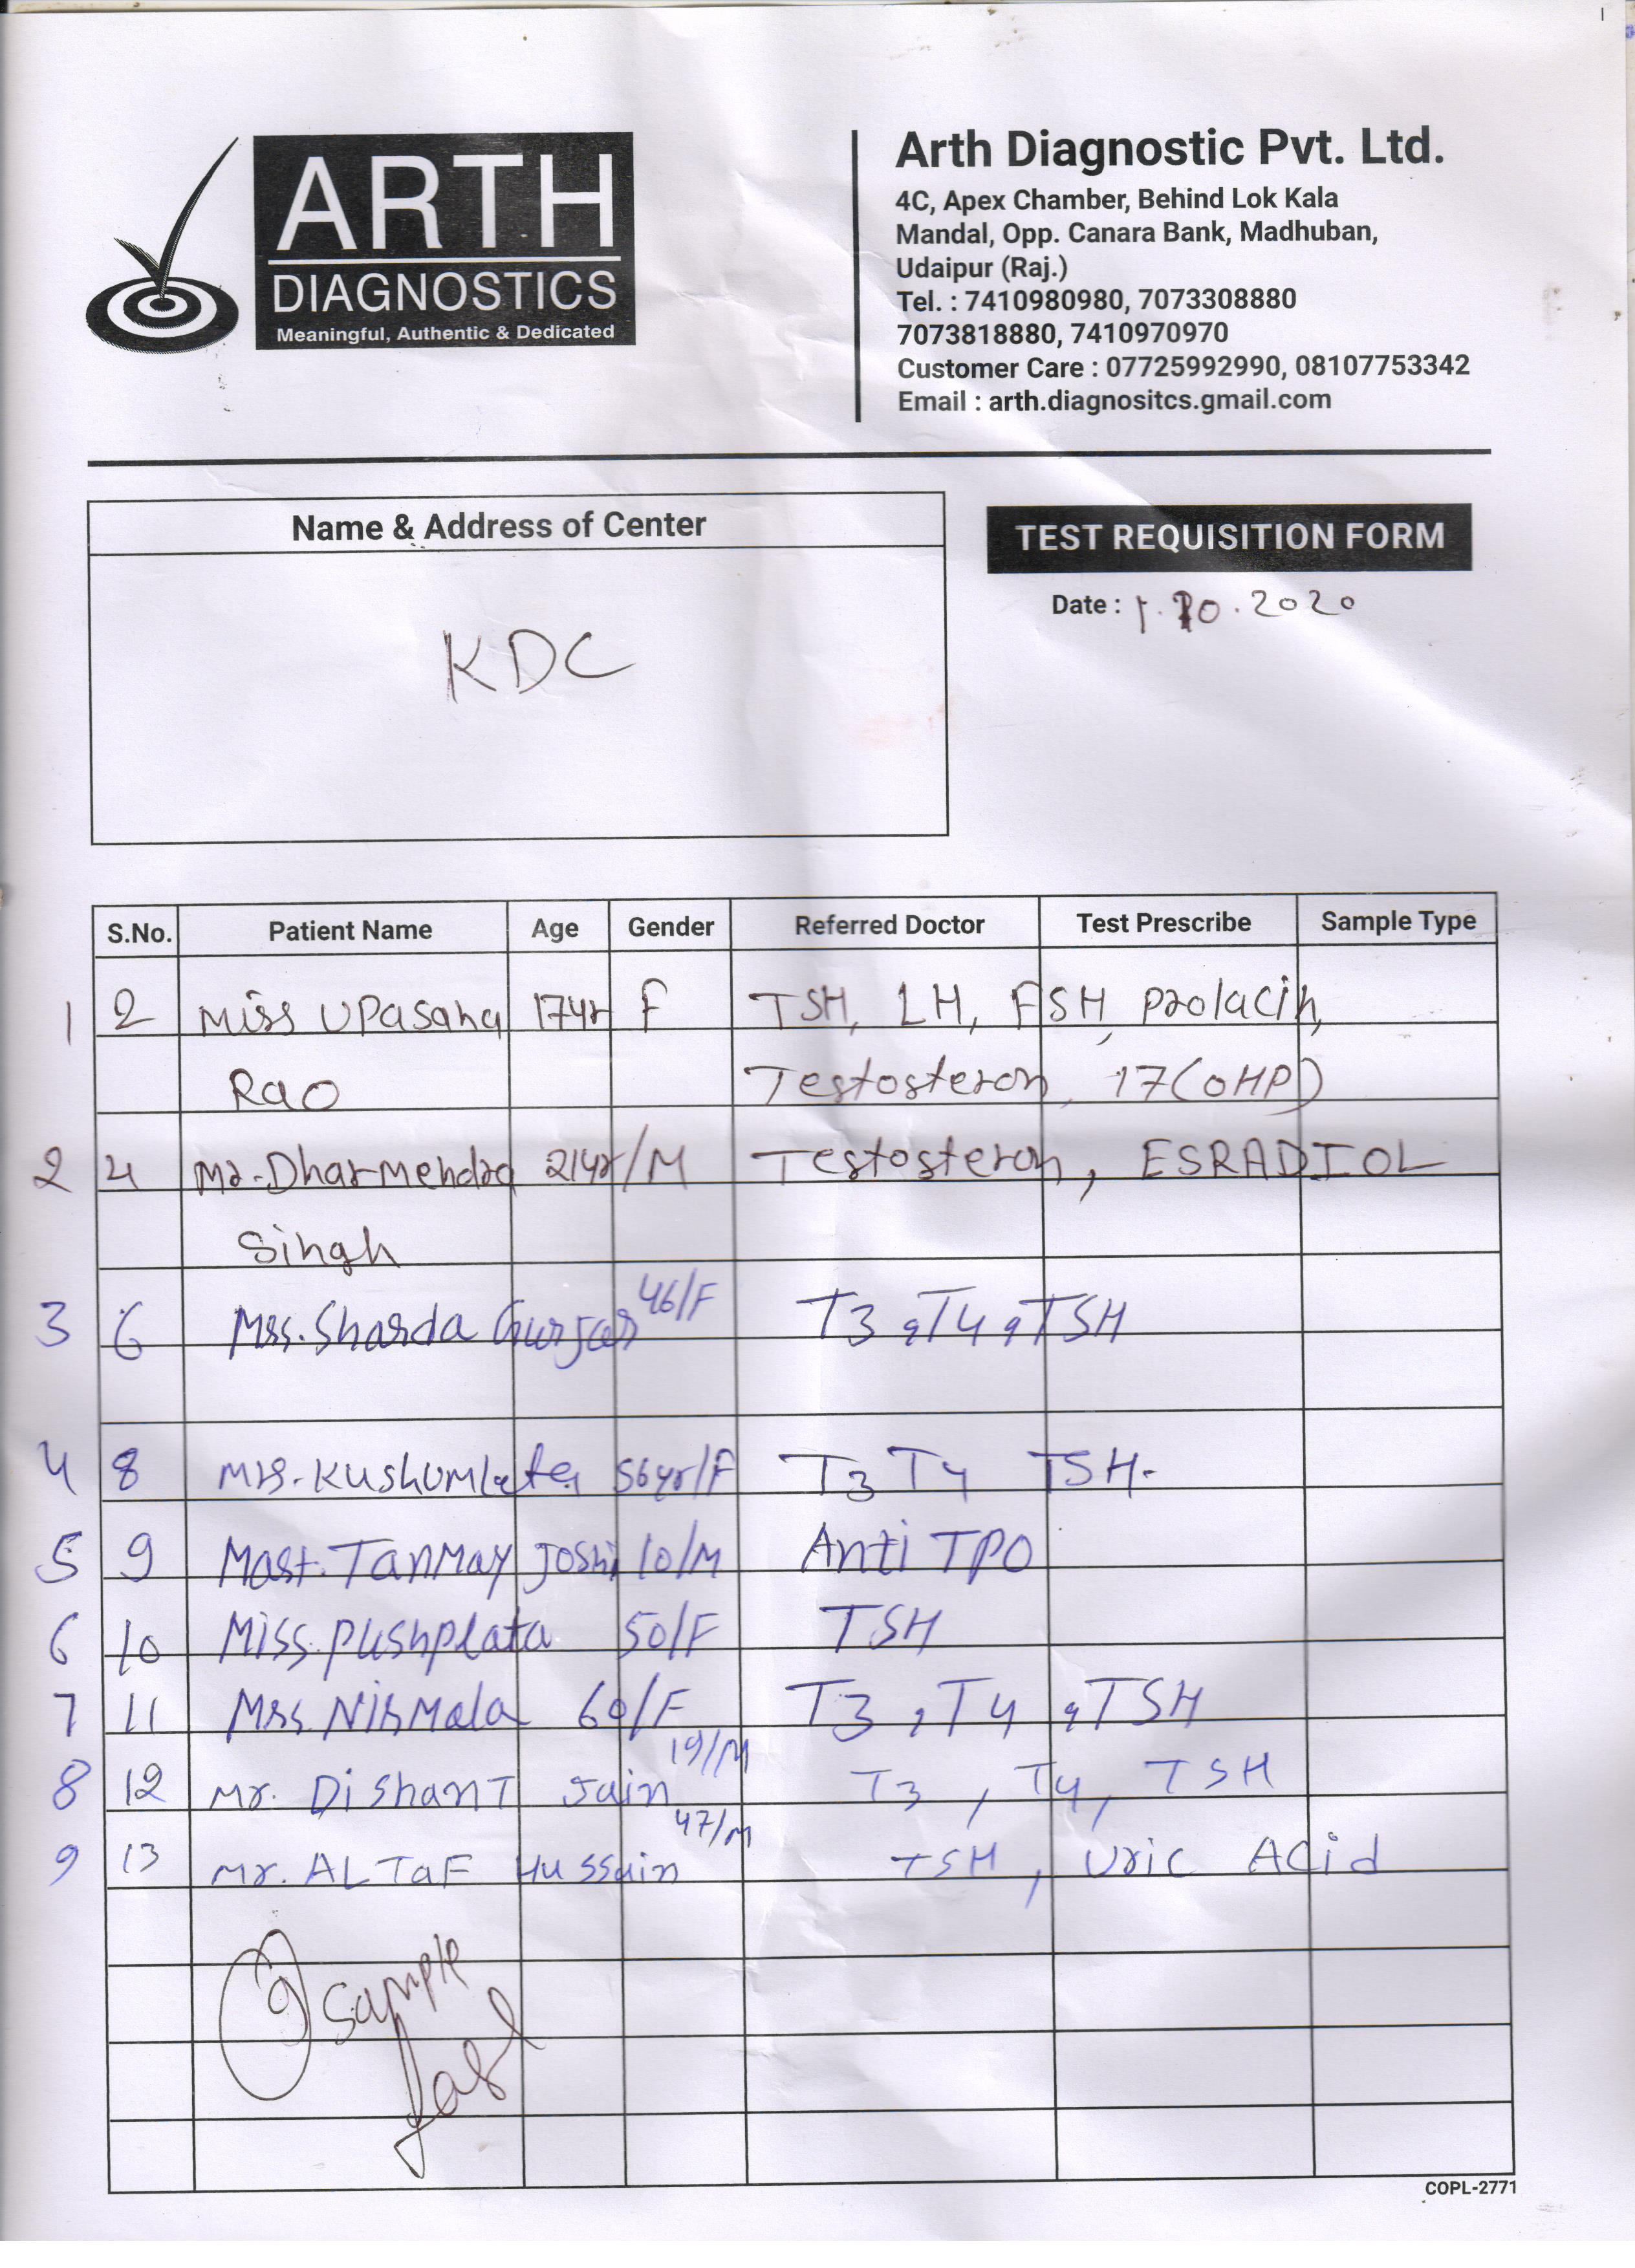 ARTH
DIAGNOSTICS
Meaningful, Authentic & Dedicated
Arth Diagnostic Pvt. Ltd.
4C, Apex Chamber, Behind Lok Kala
Mandal, Opp. Canara Bank, Madhuban,
Udaipur (Raj.)
Tel. : 7410980980, 7073308880
7073818880, 7410970970
Customer Care : 07725992990, 08107753342
Email : arth.diagnositcs.gmail.com
Name & Address of Center
KDC
TEST REQUISITION FORM
Date : 1.10.2020
S.No. Patient Name Age Gender Referred Doctor Test Prescribe Sample Type
1 2 Miss UPasana 17yr F TSH, LH, FSH, prolacin,
Rao Testosteron, 17(OHP)
2 4 Mr. Dharmendra 21yr/M Testosteron, ESRADIOL
Singh
3 6 Mrs. Sharda Gurjar 46/F T3, T4, TSH
4 8 Mrs. Kushumlata 56yr/F T3 T4 TSH.
5 9 Mast. Tanmay Joshi 10/M Anti TPO
6 10 Miss. Pushplata 50/F TSH
7 11 Mrs. Nirmala 60/F T3, T4, TSH
8 12 Mr. DishanT Jain 19/M T3, T4, TSH
9 13 Mr. ALTaF Hussain 47/M TSH, Uric Acid
9 Sample
COPL-2771